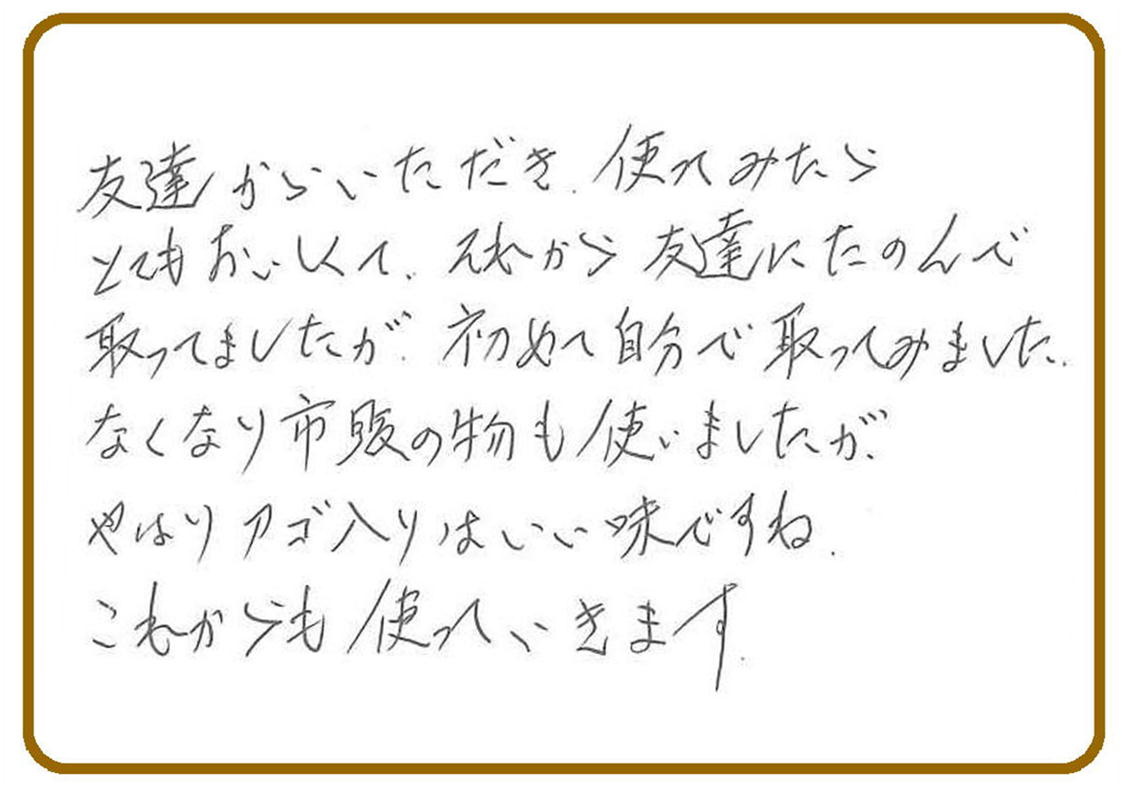 友達からいただき、使ってみたら
とてもおいしくて、それから友達にたのんで
取ってましたが、初めて自分で取ってみました。
なくなり市販の物も使いましたが、
やはりアゴ入りはいい味ですね。
これからも使っていきます。